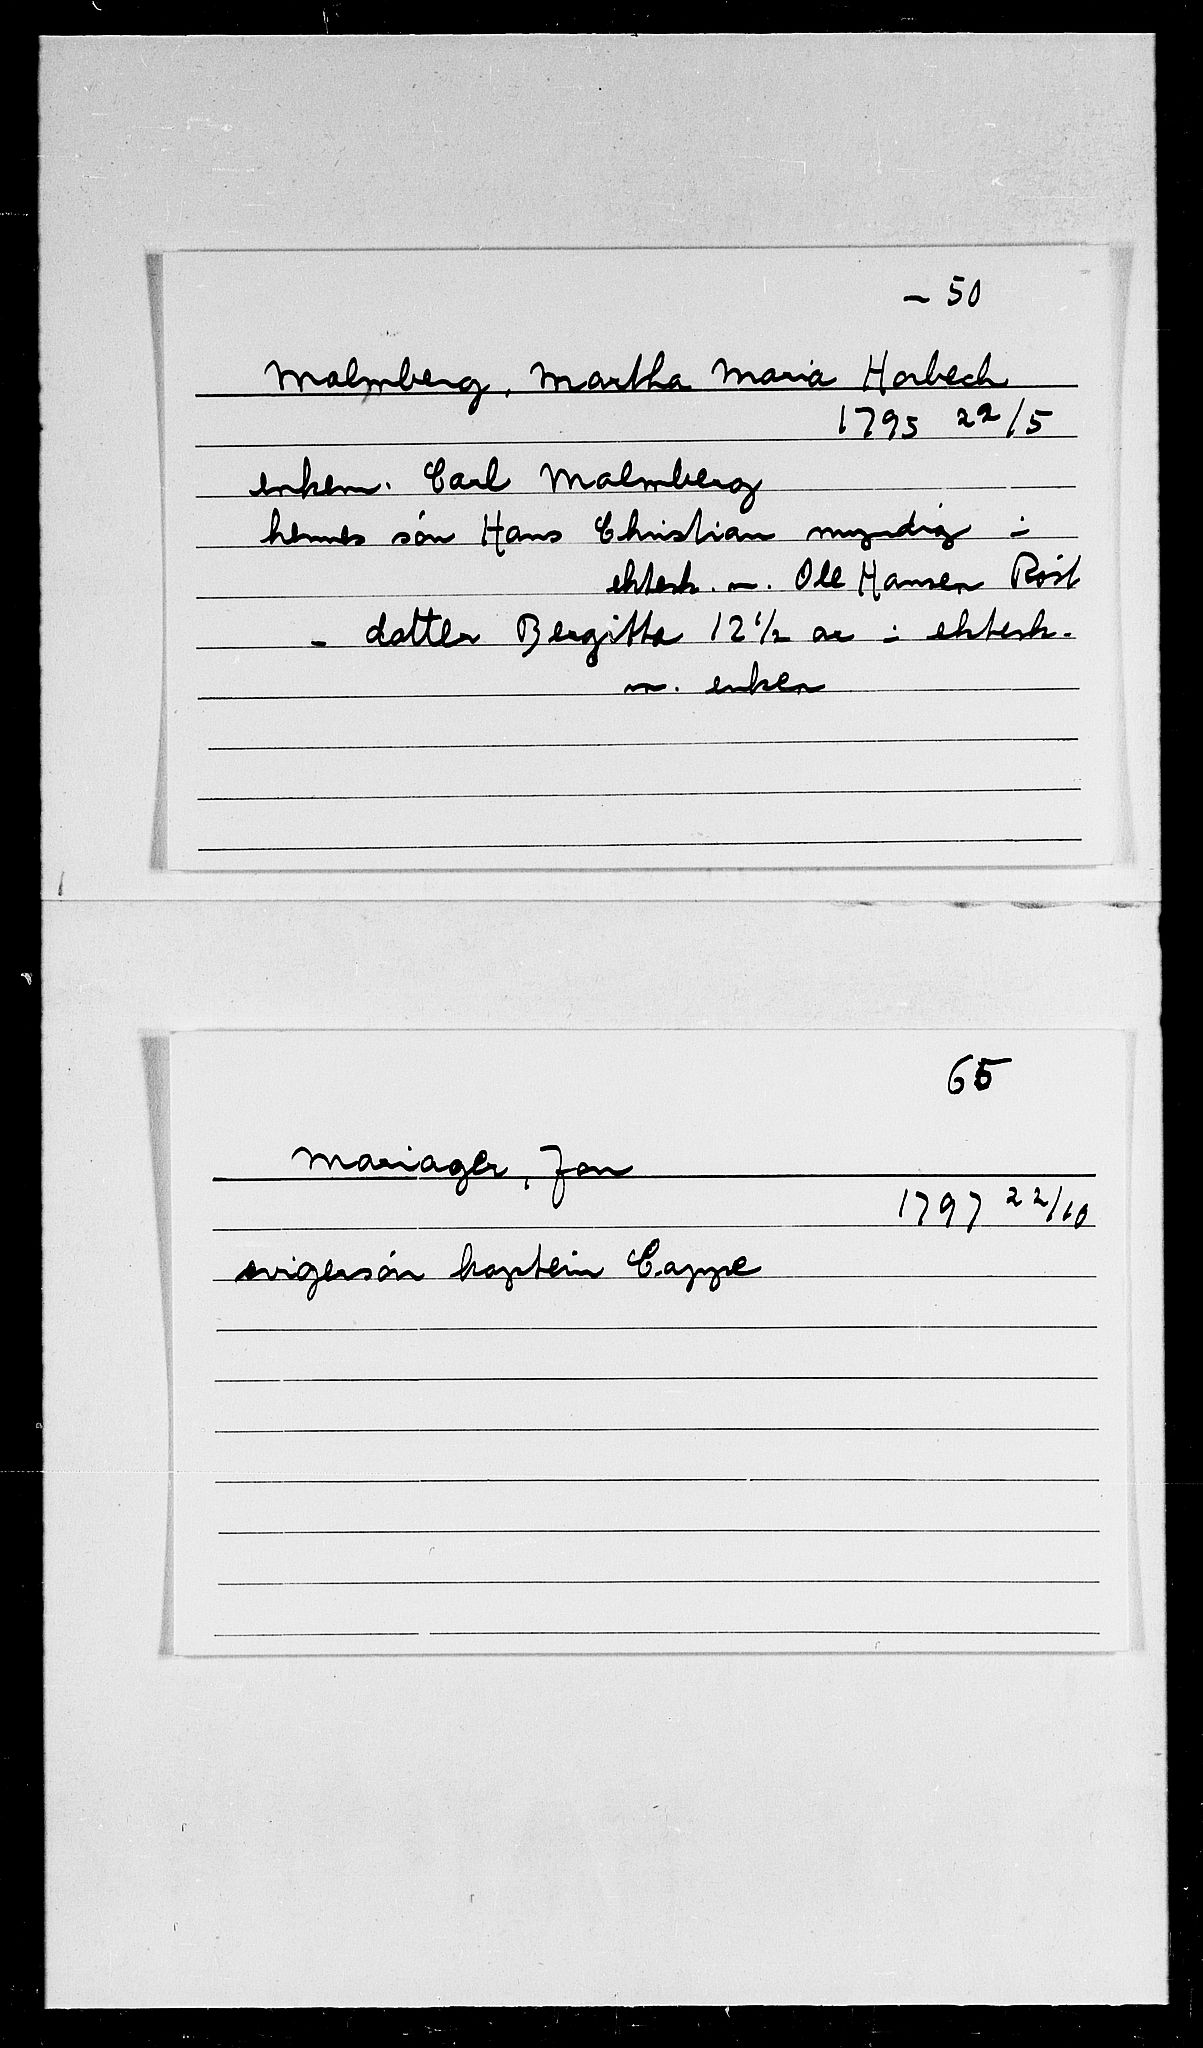 – 50
Malmberg, Martha Maria Horbech
1795 22/5
enkem. Carl Malmberg
hennes sön Hans Christian myndig i
ektesk. m. Ole Hansen Röst
– datter Bergitta 12½ år i ektesk.
m. enken
65
Mariager, Jan
1797 22/10
svigersön kaptein Cappe